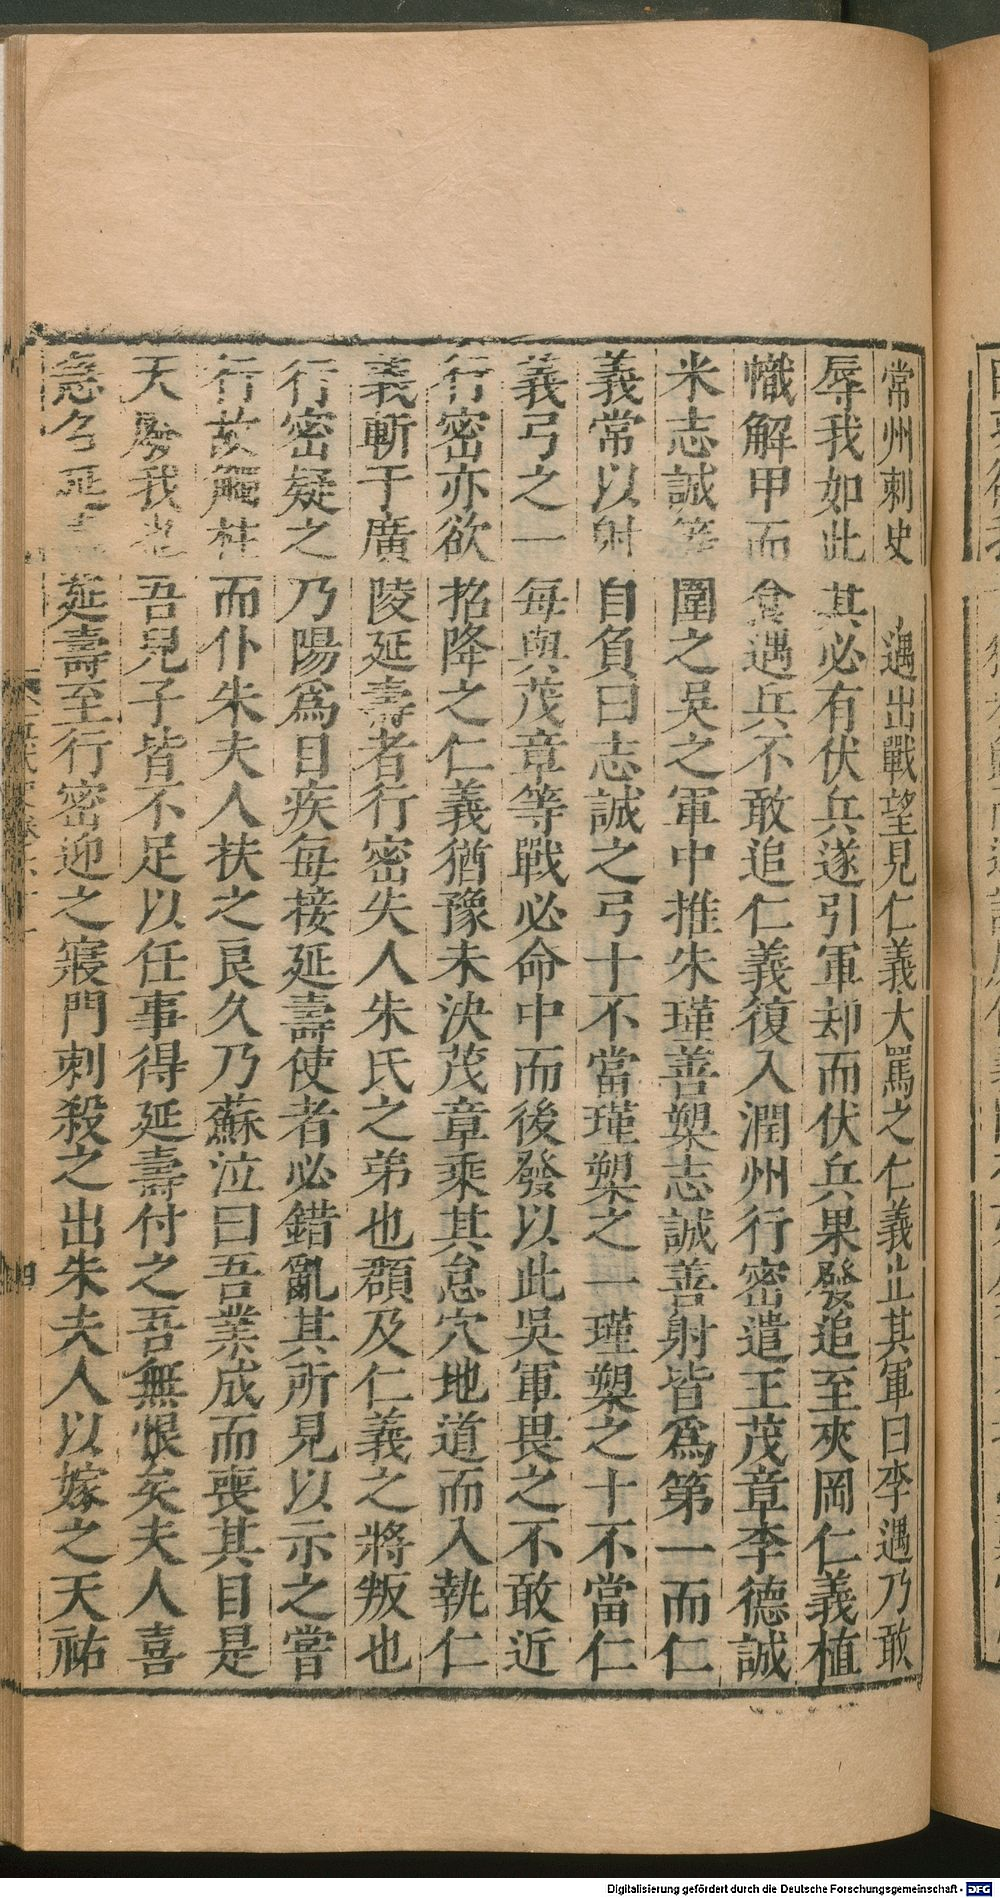 常州刺史 遇出戰望見仁義大罵之仁義止其軍曰李遇乃敢
辱我如此其必有伏兵遂引軍却而伏兵果發追至夾岡仁義植
幟解甲而食遇兵不敢追仁義復入潤州行密遣王茂章李德誠
米志誠等圍之吳之軍中推朱瑾善槊志誠善射皆爲第一而仁
義常以射自負曰志誠之弓十不當瑾槊之一瑾槊之十不當仁
義弓之一每與茂章等戰必命中而後發以此吳軍畏之不敢近
行密亦欲招降之仁義猶豫未決茂章乘其怠穴地道而入執仁
義斬于廣陵延壽者行密夫人朱氏之弟也頵及仁義之將叛也
行密疑之乃陽爲目疾每接延壽使者必錯亂其所見以示之嘗
行故觸柱而仆朱夫人扶之良久乃蘇泣曰吾業成而喪其目是
天廢我也吾兒子皆不足以任事得延壽付之吾無恨矣夫人喜
急召延 延壽至行密迎之寢門刺殺之出朱夫人以嫁之天祐
四
Digitalisierung gefördert durch die Deutsche Forschungsgemeinschaft - DFG